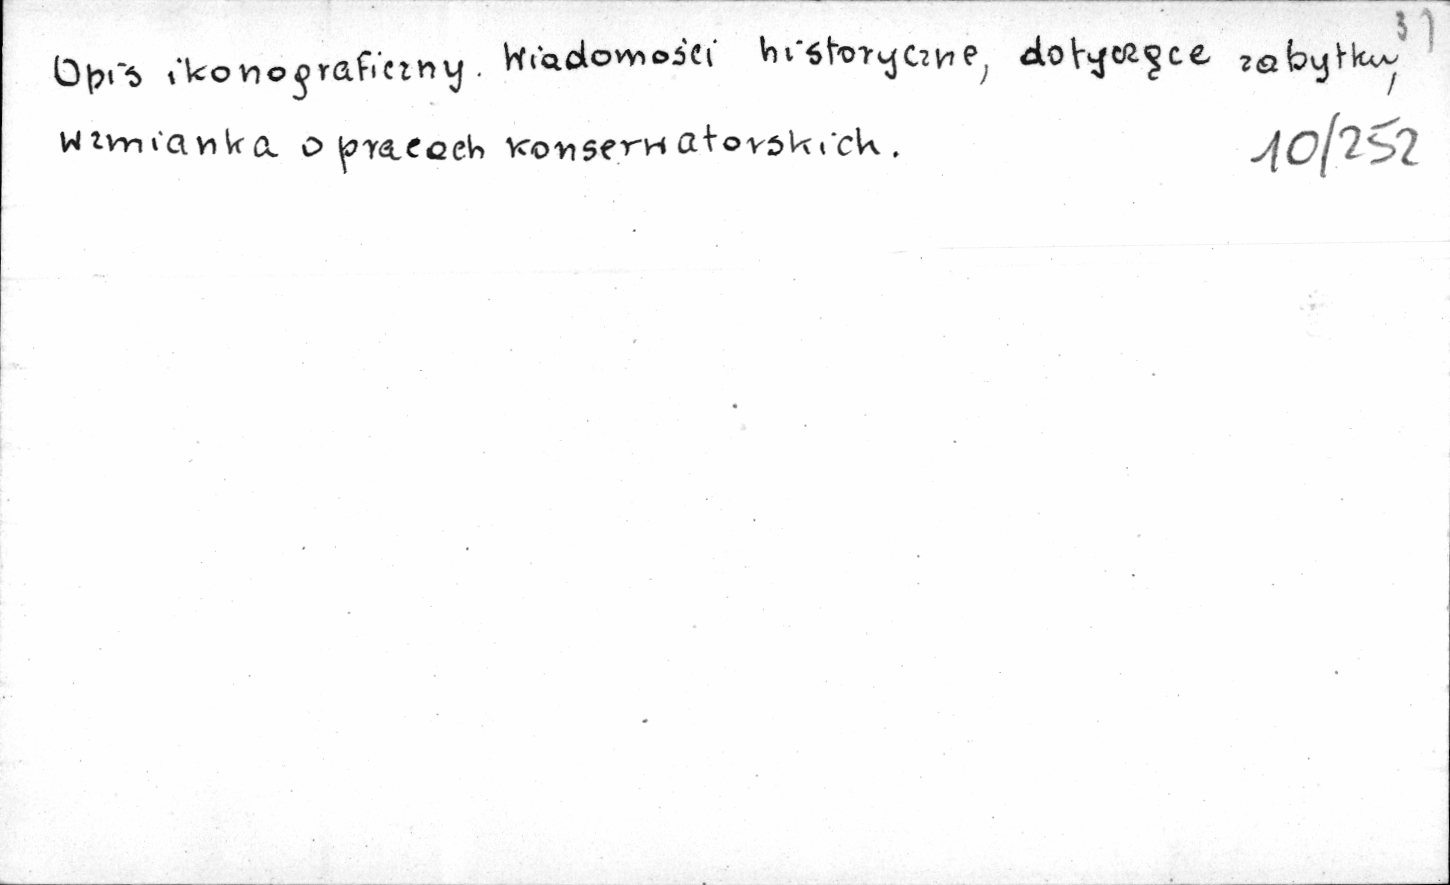 37
Opis ikonograficzny. Wiadomości historyczne, dotyczące zabytku,
wzmianka o pracach konserwatorskich.
10/252